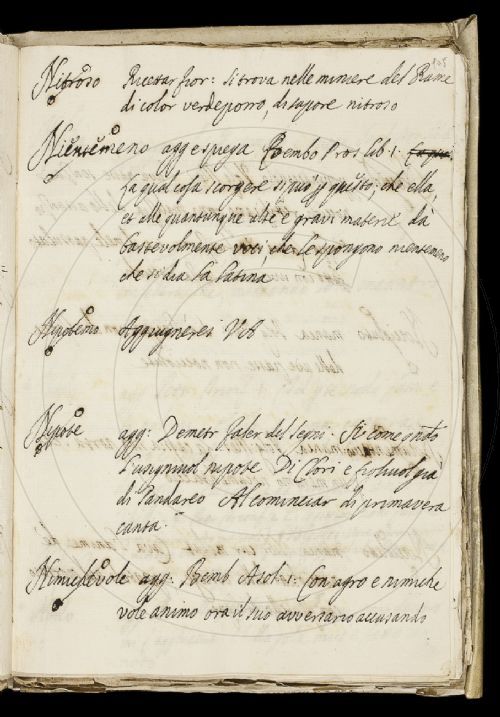 105
Nitroso Ricettar fior: si trova nelle miniere del Rame
di color verdeporro, di sapore nitroso
Nientemeno agg e spiega Bembo Pros lib. 1.
La qual cosa scorgere si può p questo, che ella
et alle quantunque alte e gravi materie dà
bastevolmente voci che le spongono nientemeno
che si dia la latina
Aggiugnerei V A
Nipote agg: Demetr faler del segni. Si come qndo
l'usignuol nipote Di Clori e figliuol già
di Pandareo Al cominciar di primavera
canta.
Nimichevole agg: Bemb Asol. 1. Con agro e nimiche
vole animo ora il suo avversario accusando